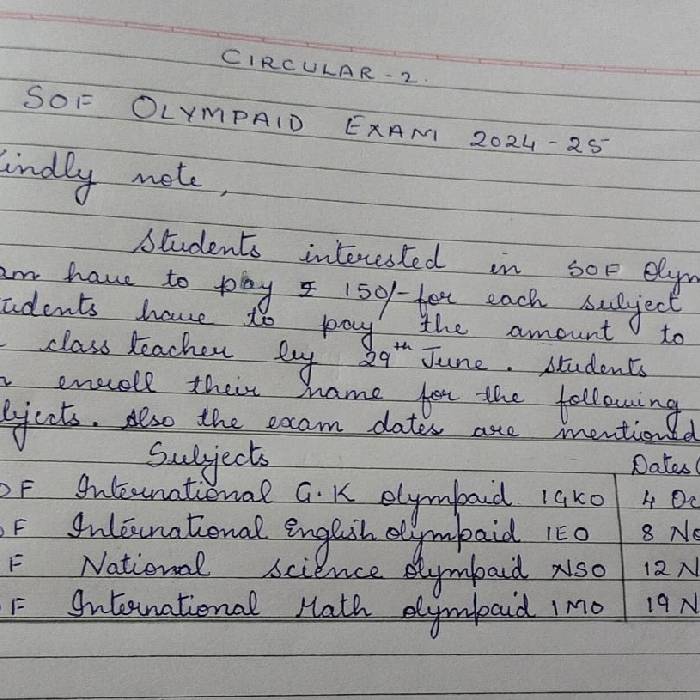 CIRCULAR - 2.
SOF OLYMPAID EXAM 2024-25
indly note,
Students interested in SOF Olym
am have to pay ₹ 150/- for each subject
tudents have to pay the amount to
class teacher by 29th June. Students
enroll their name for the following
bjects. Also the exam dates are mentioned
Subjects Dates(
OF International G.K Olympaid IGKO 4 Oc
OF International English Olympaid IEO 8 No
F National Science Olympaid NSO 12 N
OF International Math Olympaid IMO 19 N